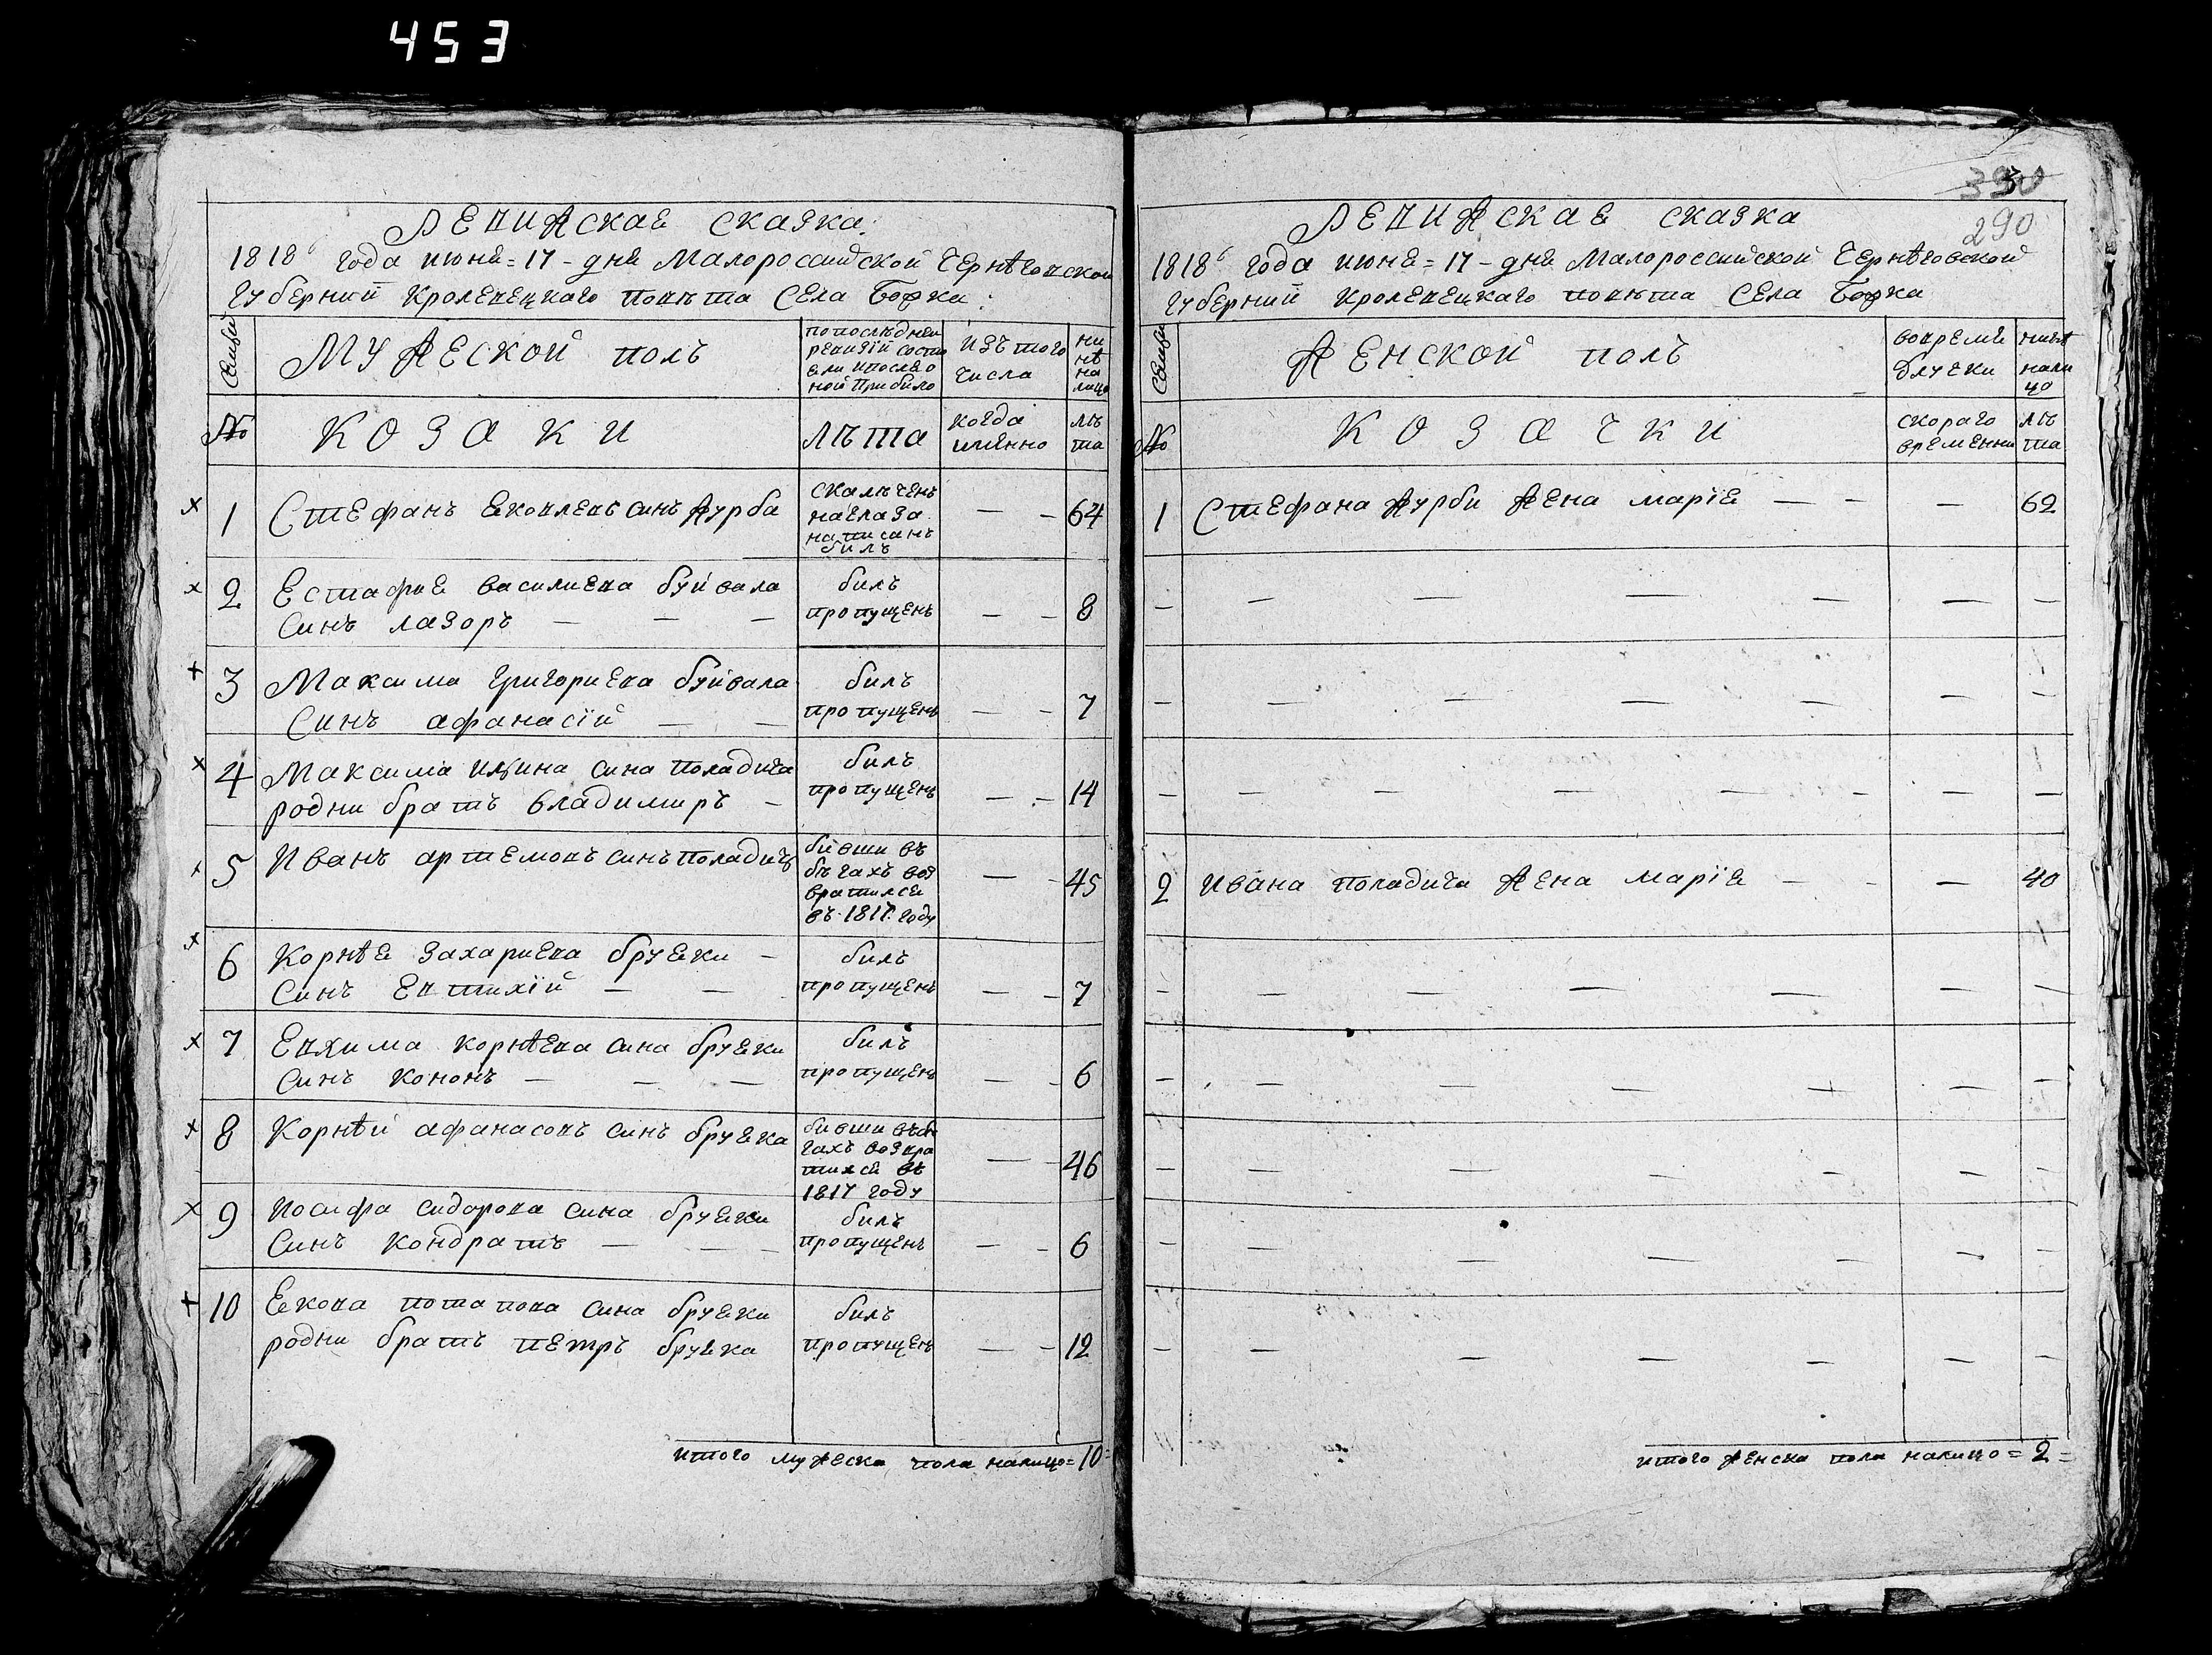 453
РЕВИЖСКАЯ СКАЗКА:
1818г года июня = 17 - дня Малороссийской ЧЕрнѣговской
губерний КролЕвецкаго повѣта СЕла
сЕмьи
МУЖЕСКОЙ полъ
попослѣдней
ревизій состо
яли ипослѣо
ной прибило
изъ того
числа
ни
нѣ
на
лицо
№
КОЗАКИ
лѣта
когда
имянно
лѣ
та
1 СтЕфанъ яковлевъ синъ журба
скалѣченъ
написанъ
билъ
— — 64
2 Естафия василиева буйвала
Синъ лазоръ — — —
билъ
пропущенъ
— — 8
3 Максима григориева буйвала
Синъ афанасїй — —
билъ
пропущенъ
— — 7
4 Максима илїина сина поладича
родни братъ владимиръ —
билъ
пропущенъ
— — 14
5 Иванъ артемовъ синъ поладичъ
бивши въ
бѣгахъ воз
вратился
въ 1817. году
— — 45
6 Корнѣя захариева бруяки —
Синъ Евтихїй — —
билъ
пропущенъ
— — 7
7 Евхима корнѣева сина бруяки
Синъ кононъ — — —
билъ
пропущенъ
— — 6
8 Корнѣй афанасовъ синъ бруяка
бивши въ бѣ
гахъ возвра
тился въ
1817 году
— — 46
9 Иосифа сидорова сина бруяки
Синъ кондратъ — — —
билъ
пропущенъ
— — 6
10 Якова потапова сина бруяки
родни братъ петръ бруяка
билъ
пропущенъ
— — 12
итого мужеска пола налицо = 10 =
390
290
РЕВИЖСКАЯ СКАЗКА
1818г года июня = 17 - дня Малороссийской ЧЕрнѣговской
губерний кролЕвецкаго повѣта СЕла
сЕмьи
ЖЕНСКОЙ полъ
вовремя
отлучки
нинѣ
нали
цо
№
КОЗАЧКИ
скораго
времЕнни
лѣ
та
1 Стефана журби жена марїя — — — 62
2 Ивана поладича жена марїя — — — 40
итого женска пола налицо = 2 =